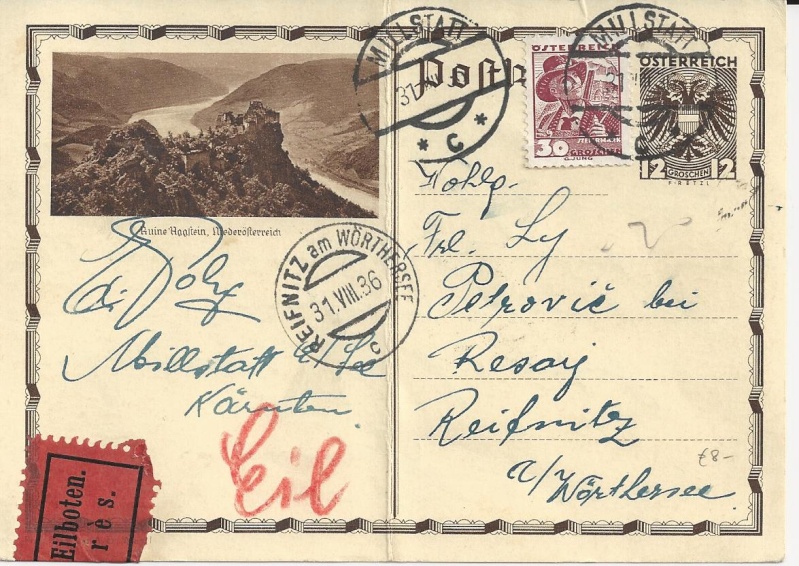 MILLSTATT
31.
* C *
Postk
ÖSTERREICH
STEIERMARK
30 GROSCHEN
G. JUNG
MILLSTATT
31
ÖSTERREICH
12 GROSCHEN 12
F·RETZL
Ruine Aggstein, Niederösterreich
REIFNITZ am WÖRTHERSEE
31.VIII.36
c
Millstatt a/See
Kärnten
Eil
Eilboten.
rès.
Wohlg.
Frl. Ly
Petrovič bei
Resay
Reifnitz
a/Wörthersee
€8-